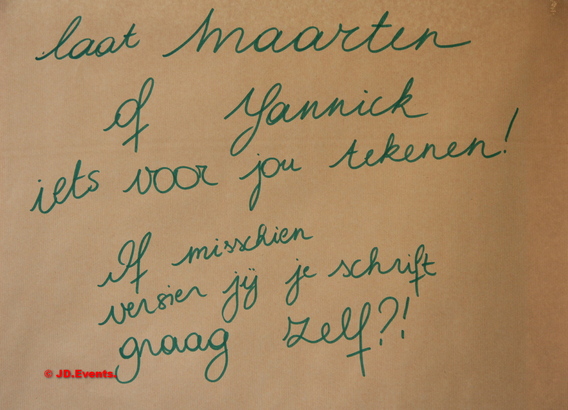 laat Maarten
of Yannick
iets voor jou tekenen!
Of misschien
versier jij je schrift
graag zelf?!
© JD.Events.